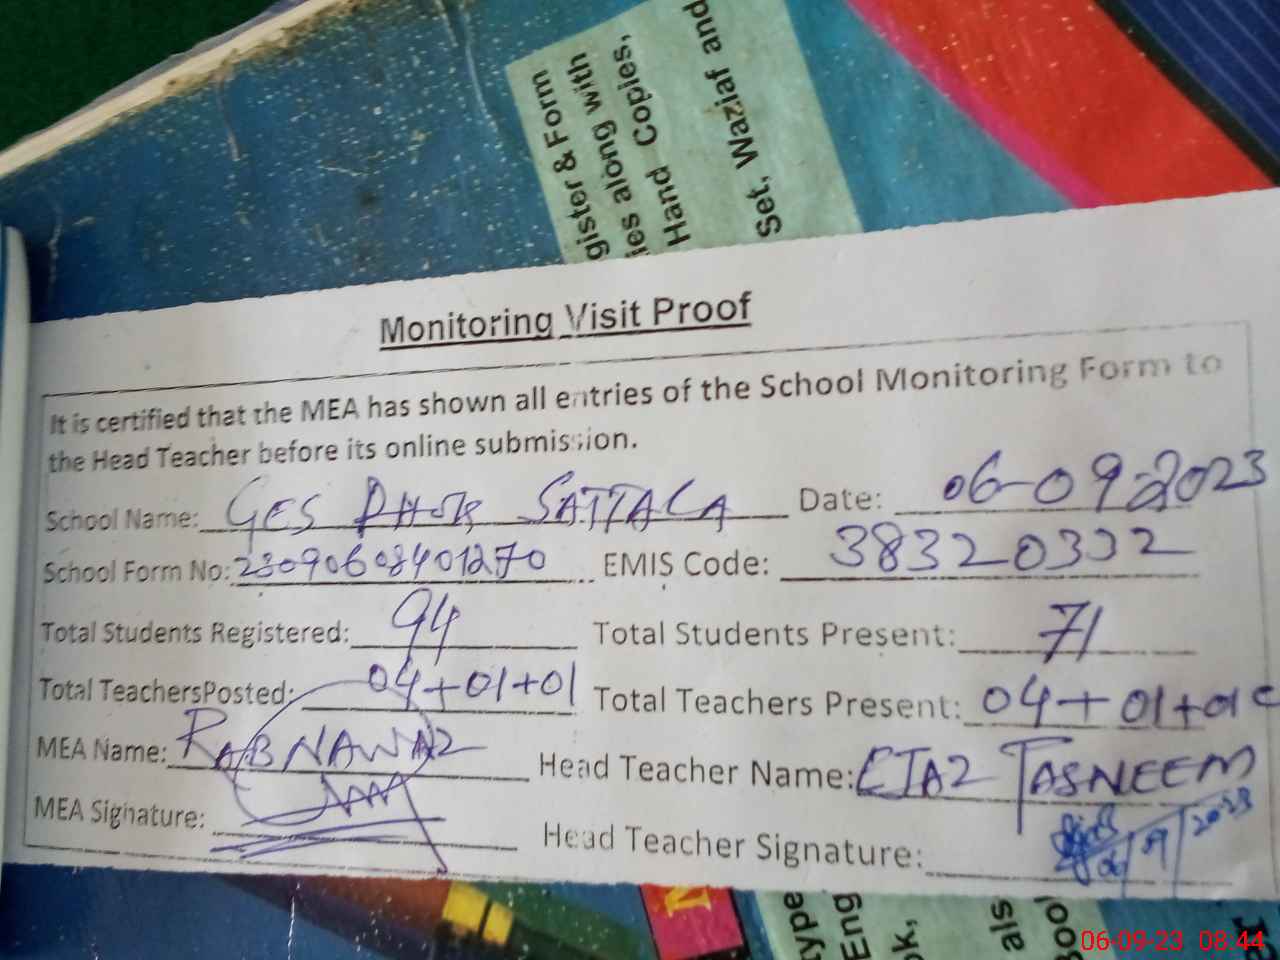 gister & Form
ies along with
Hand Copies,
Set, Waziaf and
Monitoring Visit Proof
It is certified that the MEA has shown all entries of the School Monitoring Form to
the Head Teacher before its online submission.
School Name: GES SATTALA Date: 06-09-2023
School Form No: 23090608401270 EMIS Code: 38320332
Total Students Registered: 94 Total Students Present: 71
Total TeachersPosted: 04+01+01 Total Teachers Present: 04+01+01
MEA Name: RAB NAWAZ Head Teacher Name: EJAZ TASNEEM
MEA Signature: Head Teacher Signature: 06/09/2023
ype
Eng
ok,
als
Bool
06-09-23 08:44